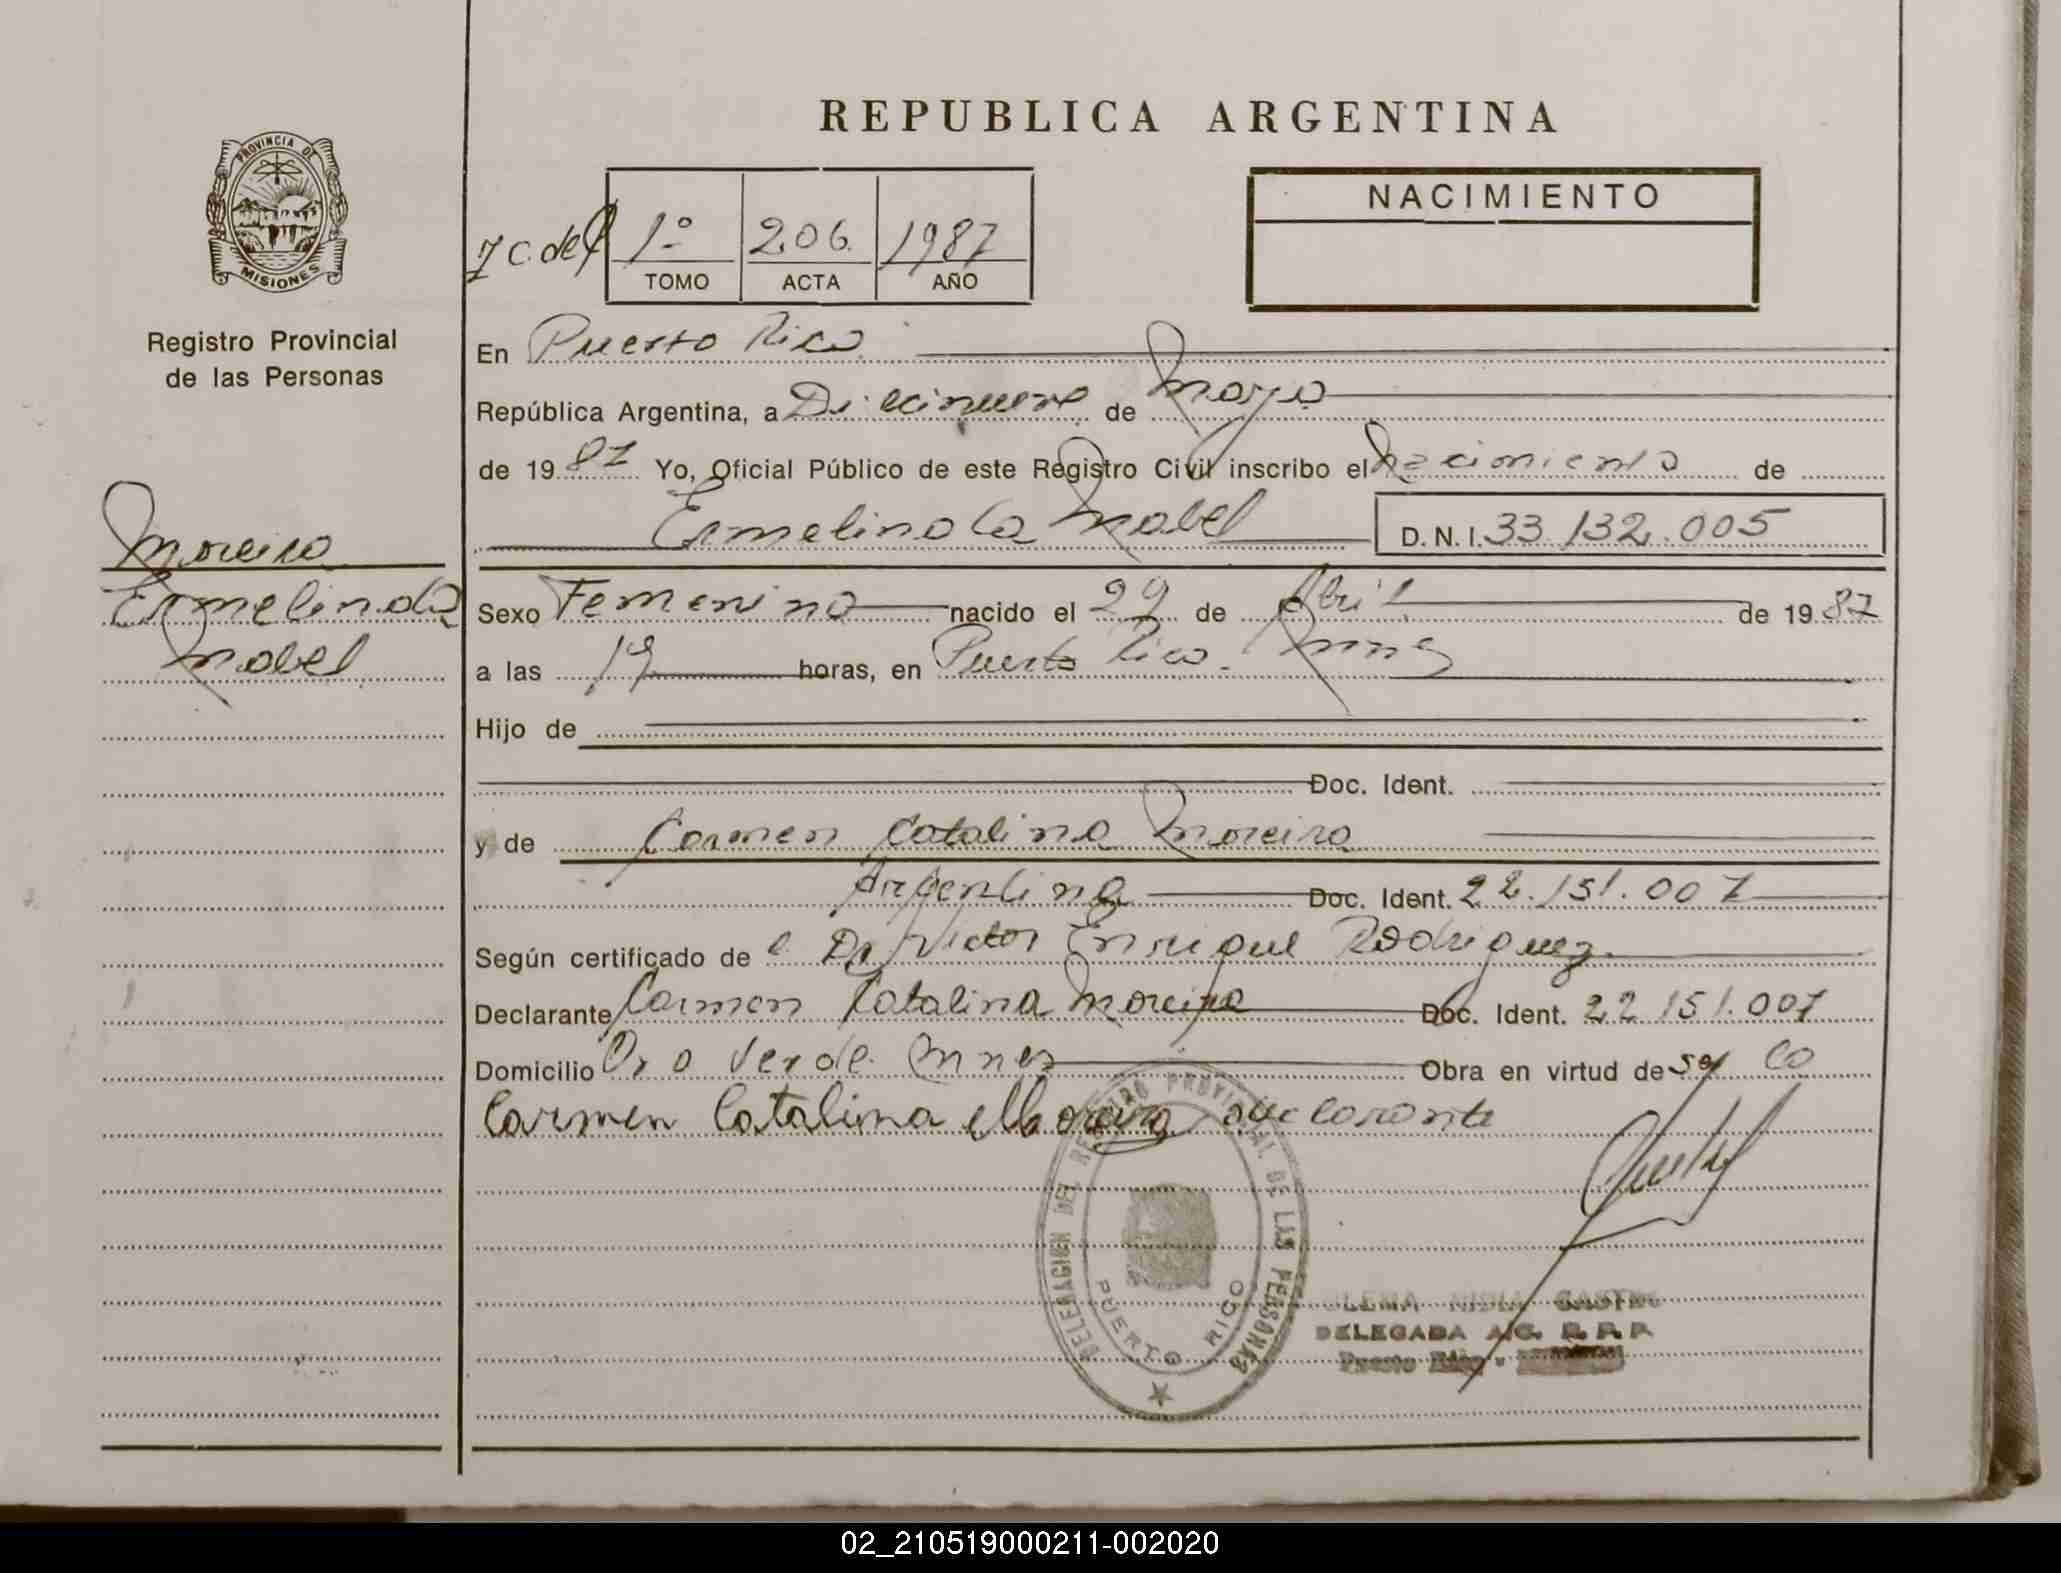 REPUBLICA ARGENTINA
PROVINCIA DE
MISIONES
Registro Provincial
de las Personas
1º 206 1987
TOMO ACTA AÑO
NACIMIENTO
En Puerto Rico
República Argentina, a Diecinueve de Mayo
de 1987 Yo, Oficial Público de este Registro Civil inscribo el Nacimiento de
Ermelinda Mabel D.N.I. 33.132.005
Moreira
Ermelinda
Mabel
Sexo Femenino nacido el 29 de Abril de 1987
a las 19 horas, en Puerto Rico. Mnes
Hijo de
Doc. Ident.
y de Carmen Catalina Moreira
Argentina Doc. Ident. 22.151.007
Según certificado de el Dr. Victor Enrique Rodriguez.
Declarante Carmen Catalina Moreira Doc. Ident. 22.151.007
Domicilio Oro Verde Mnes Obra en virtud de
Carmen Catalina Moreira declarante
DELEGACION DEL REGISTRO PROVINCIAL DE LAS PERSONAS
PUERTO RICO
CASTRO
DELEGADA A/C. R. P. P.
Puerto Rico -
02_210519000211-002020